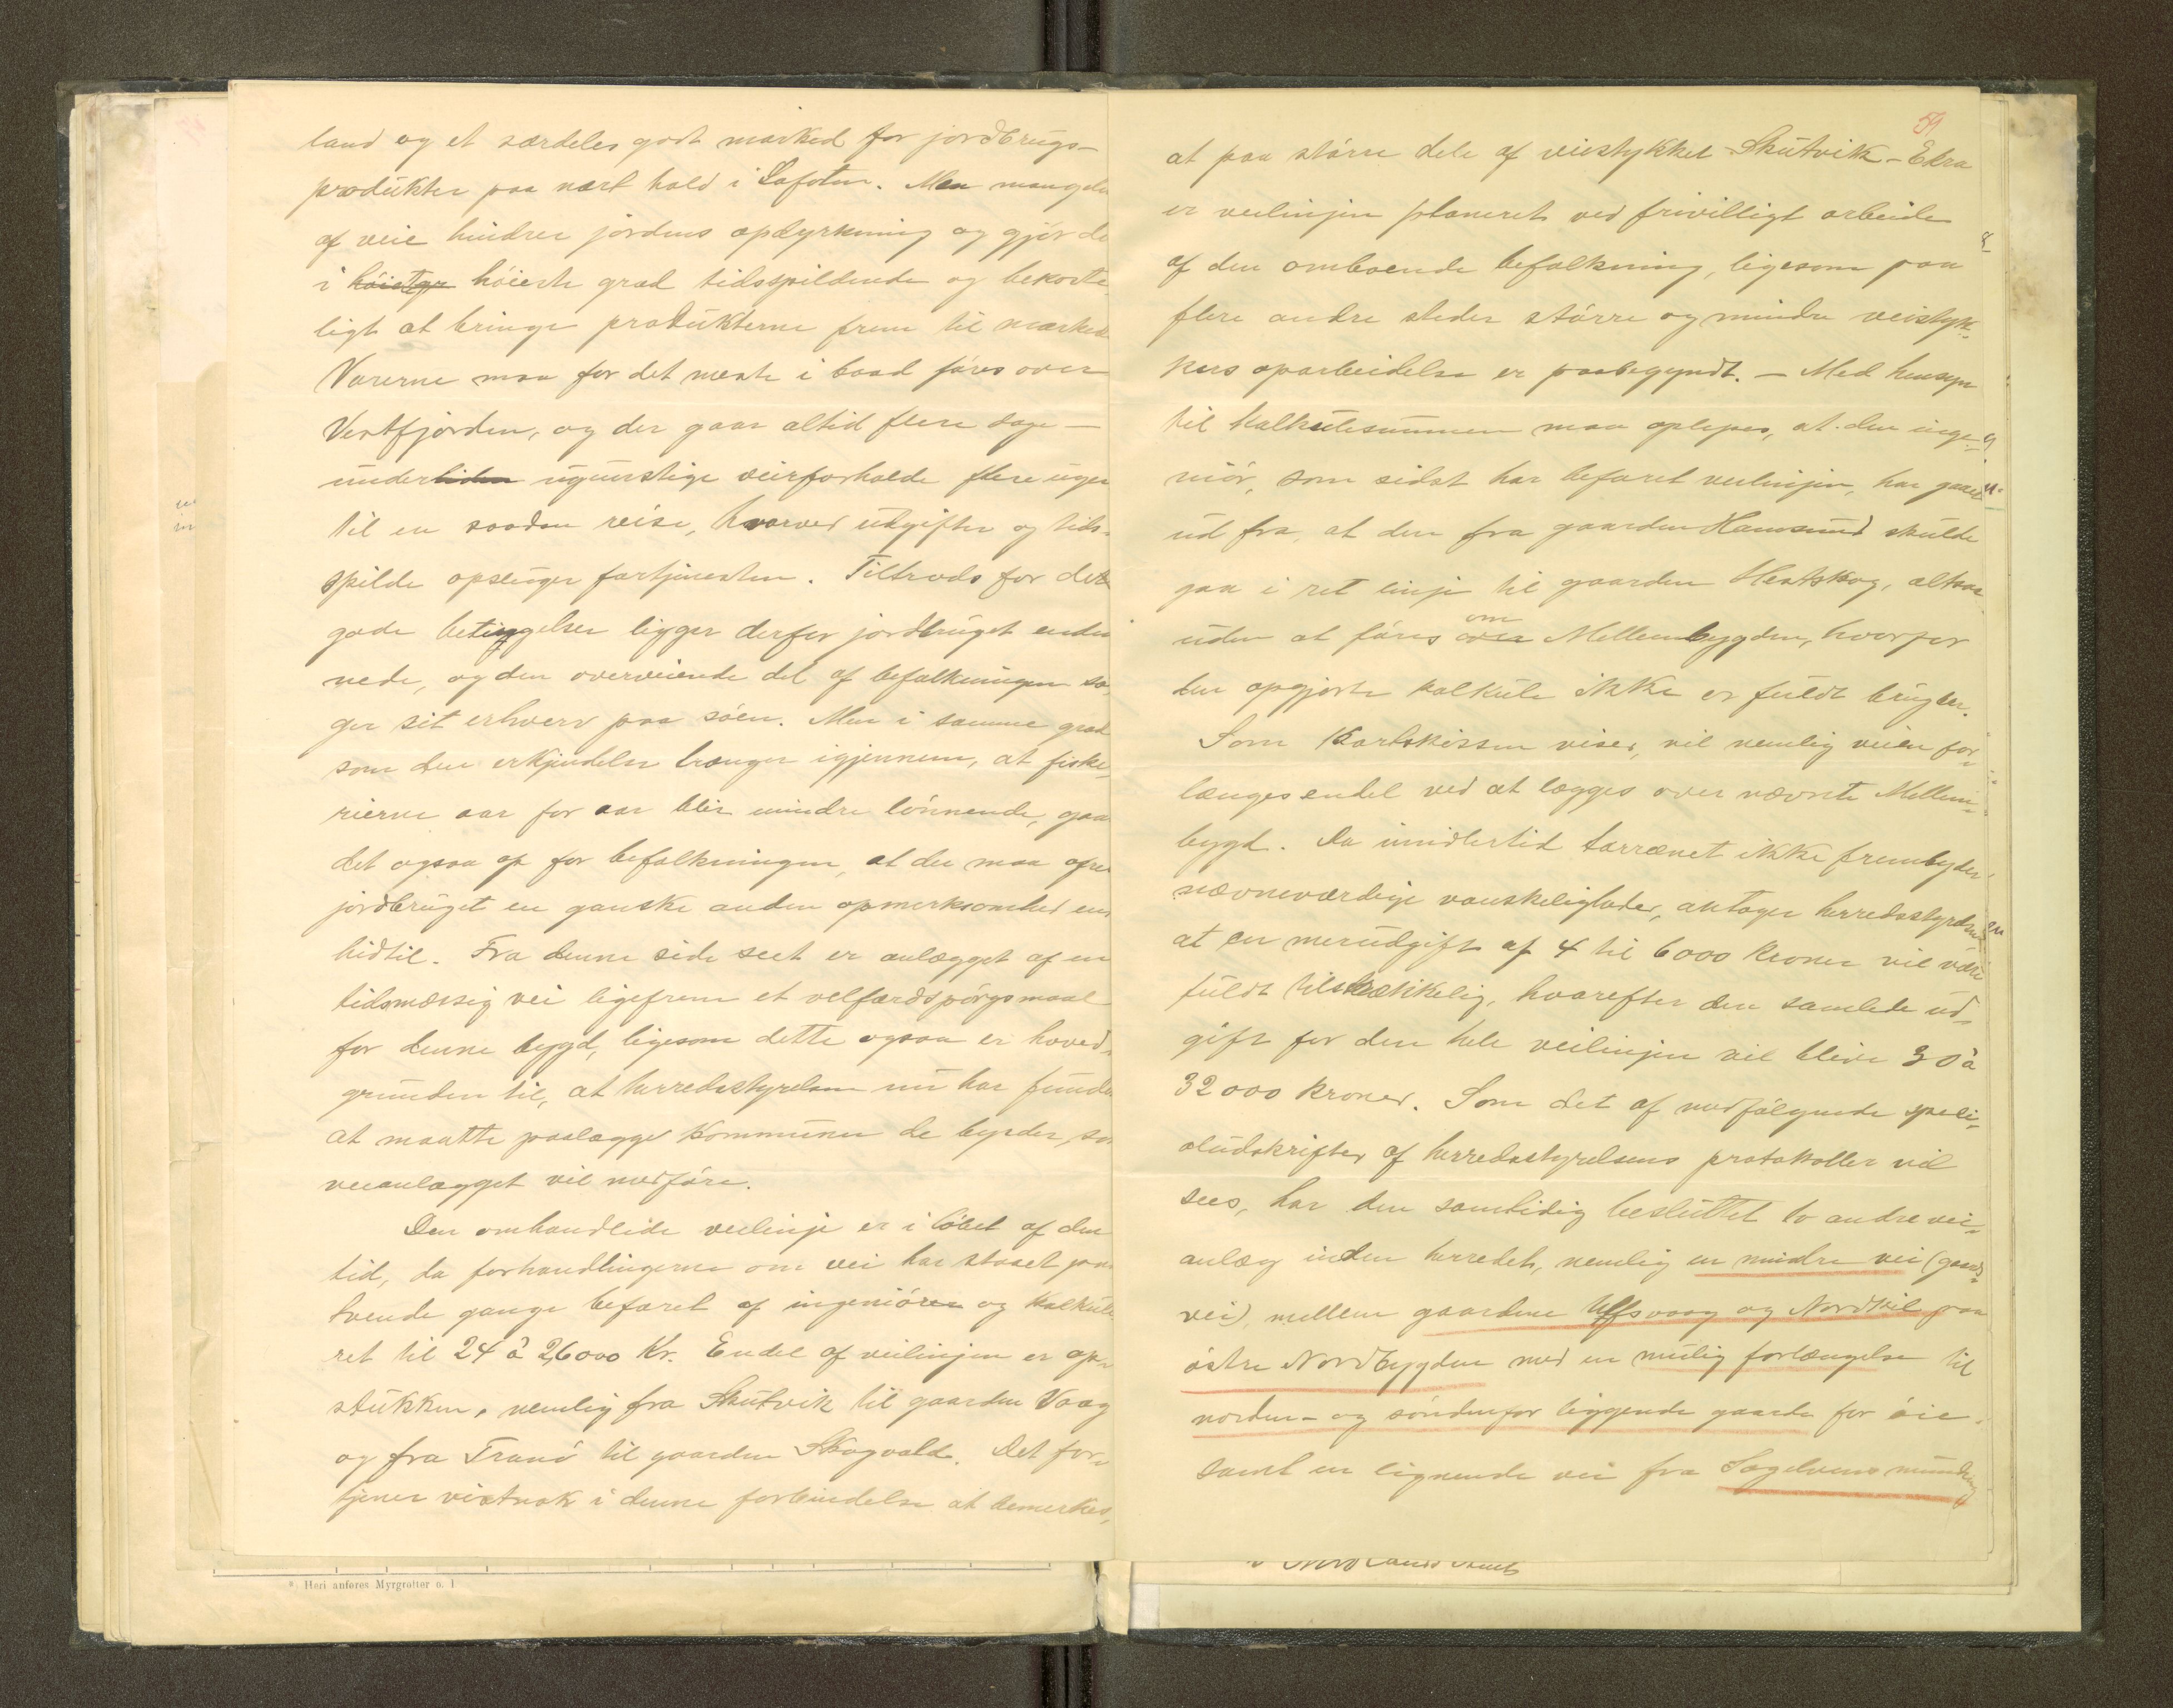 land og et særdeles godt marked for jordbrugs-
produkter paa nært hold i Lofoten. Men mangelen
af veie hindrer jordens opdyrkning og gjør de
i høieste grad tidsspildende og bekoste-
ligt at bringe produkterne frem til markedet
Varerne maa for det meste i baad føres over
Vestfjorden, og der gaar altid flere dage -
under ugunstige veirforholde flere uger
til en saadan reise, hvorved udgifter og tids-
spilde opsluger fortjenesten. Tiltrods for dette
gode betingelser ligger derfor jordbruget endnu
nede, og den overveiende del af befolkningen sø-
ger sit erhverv paa søen. Men i samme grad
som den erkjendelse trænger igjennem, at fiske-
rierne aar for aar blir mindre lønnende, gaar
det ogsaa op for befolkningen, at der maa ofres
jordbruget en ganske anden opmerksomhed end
hidtil. Fra denne side seet er anlægget af en
tidsmæssig vei ligefrem et velfærdspørgsmaal
for denne bygd, ligesom dette ogsaa er hoved-
grunden til, at herredsstyrelsen nu har fundet
at maatte paalægge kommunen de byrder, som
veianlægget vil medføre.
Den omhandlede veilinje er i løbet af den
tid, da forhandlingerne om vei har staaet paa
tvende gange befaret af ingeniører og kalkule-
ret til 24 à 26000 Kr. Endel af veilinjen er op-
stukken, nemlig fra Skutvik til gaarden Vaag
og fra Tranø til gaarden Skogvold. Det for-
tjener vistnok i denne forbindelse at bemerkes,
59
at paa større dele af veistykket Skutvik - Ekra
er veilinjen planeret ved frivilligt arbeide
af den omboende befolkning, ligesom paa
flere andre steder større og mindre veistyk-
kers oparbeidelse er paabegyndt. - Med hensyn
til kalkulesummen maa oplyses, at den inge-
niør, som sidst har befaret veilinjen, har gaaet
ud fra, at den fra gaarden Hamsund skulde
gaa i ret linje til gaarden Hestskog, altsaa
om
uden at føres over Mellembygden, hvorfor
den opgjorte kalkule ikke er fuldt brugbar.
Som Kartskissen viser, vil nemlig veien for-
længes endel ved at lægges over nævnte Mellem-
bygd. Da imidlertid tarrænet ikke frembyder
nævneværdige vanskeligheder, antager herredsstyrelsen
at en merudgift af 4 til 6000 kroner vil være
fuldt tilstrækkelig, hvorefter den samlede ud-
gift for den hele veilinjen vil blive 30 à
32000 kroner. Som det af medfølgende speci-
aludskrifter af herredsstyrelsens protokoller vil
sees, har den samtidig besluttet to andre vei-
anlæg inden herredet, nemlig en mindre vei (gaards-
vei), mellem gaardene Uffsvaag og Nordkil paa
østre Nordbygden med en mulig forlængelse til
norden- og søndenfor liggende gaarde for øie.
samt en lignende vei fra Sagelvens munding
* Heri anføres Myrgrøfter o. l